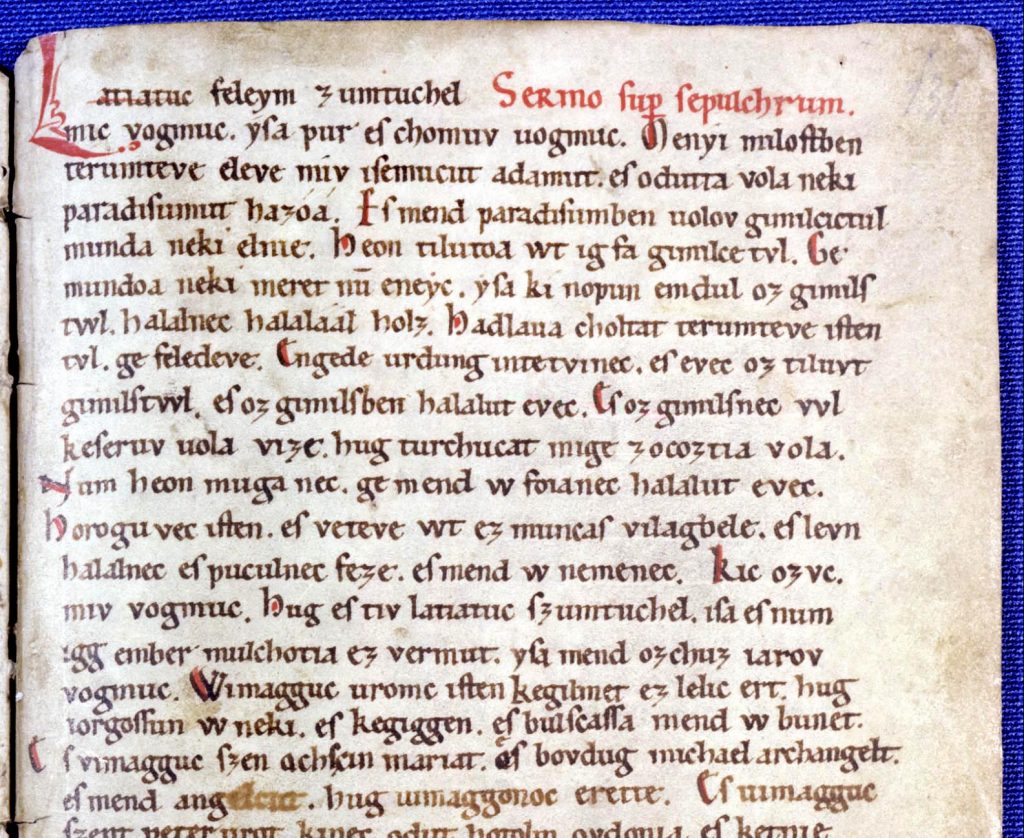 Latiatuc feleym zumtuchel Sermo sup sepulchrum.
mic vogmuc. ysa pur es chomuv uogmuc. Menyi miloſtben
terumteve eleve miv isemucut adamut. es odutta vola neki
paradisumut hazoá. Es mend paradisumben uolov gimilcictul
munda neki elnie. Heon tilutoa wt ig fa gimilce tvl. Ge
mundoa neki meret nū eneyc. ysa ki nopun emdul oz gimils
twl. halalnec halaláál holz. Hadlaua choltat terumteve iſten
tvl. ge feledeve. Engede urdung intetvinec. es evec oz tiluvt
gimilstvvl. es oz gimilsben halalut evec. Es oz gimilsnec vvl
keseruv uola vize. hug turchucat mige zocoztia vola.
Num heon muga nec. ge mend w foianec halalut evec.
Horogu vec iſten. es veteve wt ez muncas vilagbele. es levn
halalnec es puculnec feze. es mend w nemenec. Kic ozvc.
miv vogmuc. Hug es tiv latiatuc szumtuchel. isa es num
igg ember mulchotia ez vermut. ysa mend ozchuz iarov
vogmuc. Wimagguc uromc iſten kegilmet ez lelic ert. hug
iorgossun w neki. es kegiggen. es bulscassa mend w bunet.
Es vimagguc szen achscin mariat. es bovdug michael archangelt.
es mend angelcut. hug uimaggonoc erette. Es uimagguc
szent peter urot. kinec odut hotolm ovdonia. es ketnie.